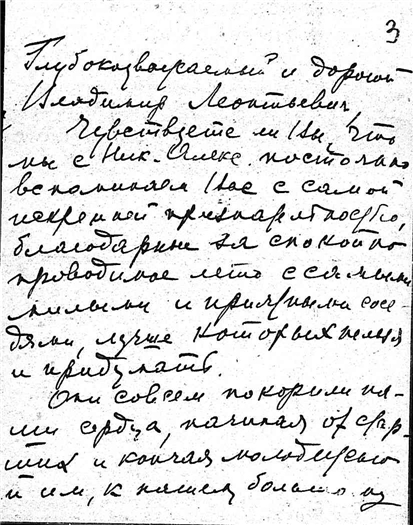 3
Глубокоуважаемый и дорогой
Владимир Леонтьевич,
Чувствуете ли Вы, что
мы с Ник. Алекс. постоянно
вспоминаем Вас с самой
искренней признательностью,
благодарные за спокойно
проводимое лето с самыми
милыми и приятными сосе-
дями, лучше которых нельзя
и придумать.
Они совсем покорили на-
ши сердца, начиная от стар-
ших и кончая молодежью
и им, к нашему большому